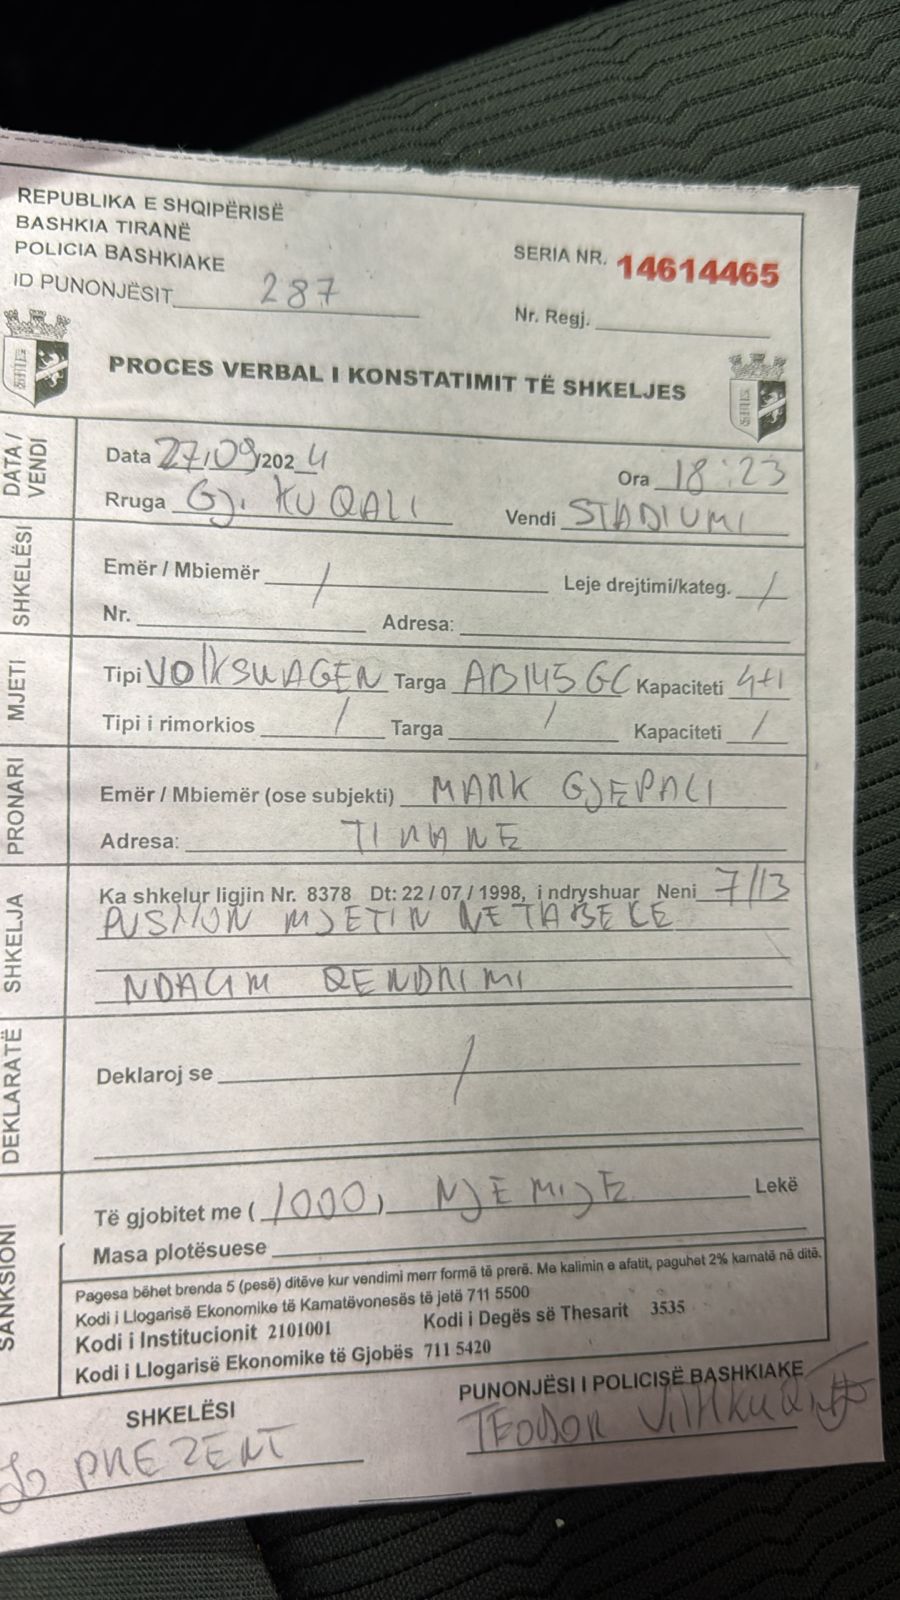 REPUBLIKA E SHQIPËRISË
BASHKIA TIRANË
POLICIA BASHKIAKE
ID PUNONJËSIT 287
SERIA NR. 14614465
Nr. Regj.
PROCES VERBAL I KONSTATIMIT TË SHKELJES
DATA / VENDI
Data 27/09/2024 Ora 18:23
Rruga Gj. KUQALI Vendi STADIUMI
SHKELËSI
Emër / Mbiemër / Leje drejtimi/kateg. /
Nr. Adresa:
MJETI
Tipi VOLKSWAGEN Targa AB145GC Kapaciteti 4+1
Tipi i rimorkios / Targa / Kapaciteti /
PRONARI
Emër / Mbiemër (ose subjekti) MARK GJEPALI
Adresa: TIRANE
SHKELJA
Ka shkelur ligjin Nr. 8378 Dt: 22 / 07 / 1998, i ndryshuar Neni 7/13
PUSHON MJETIN NE TABELE
NDALIM QENDRIMI
DEKLARATË
Deklaroj se /
SANKSIONI
Të gjobitet me (1000) NJE MIJE Lekë
Masa plotësuese
Pagesa bëhet brenda 5 (pesë) ditëve kur vendimi merr formë të prerë. Me kalimin e afatit, paguhet 2% kamatë në ditë.
Kodi i Llogarisë Ekonomike të Kamatëvonesës të jetë 711 5500
Kodi i Institucionit 2101001 Kodi i Degës së Thesarit 3535
Kodi i Llogarisë Ekonomike të Gjobës 711 5420
SHKELËSI PUNONJËSI I POLICISË BASHKIAKE
PREZENT TEODOR